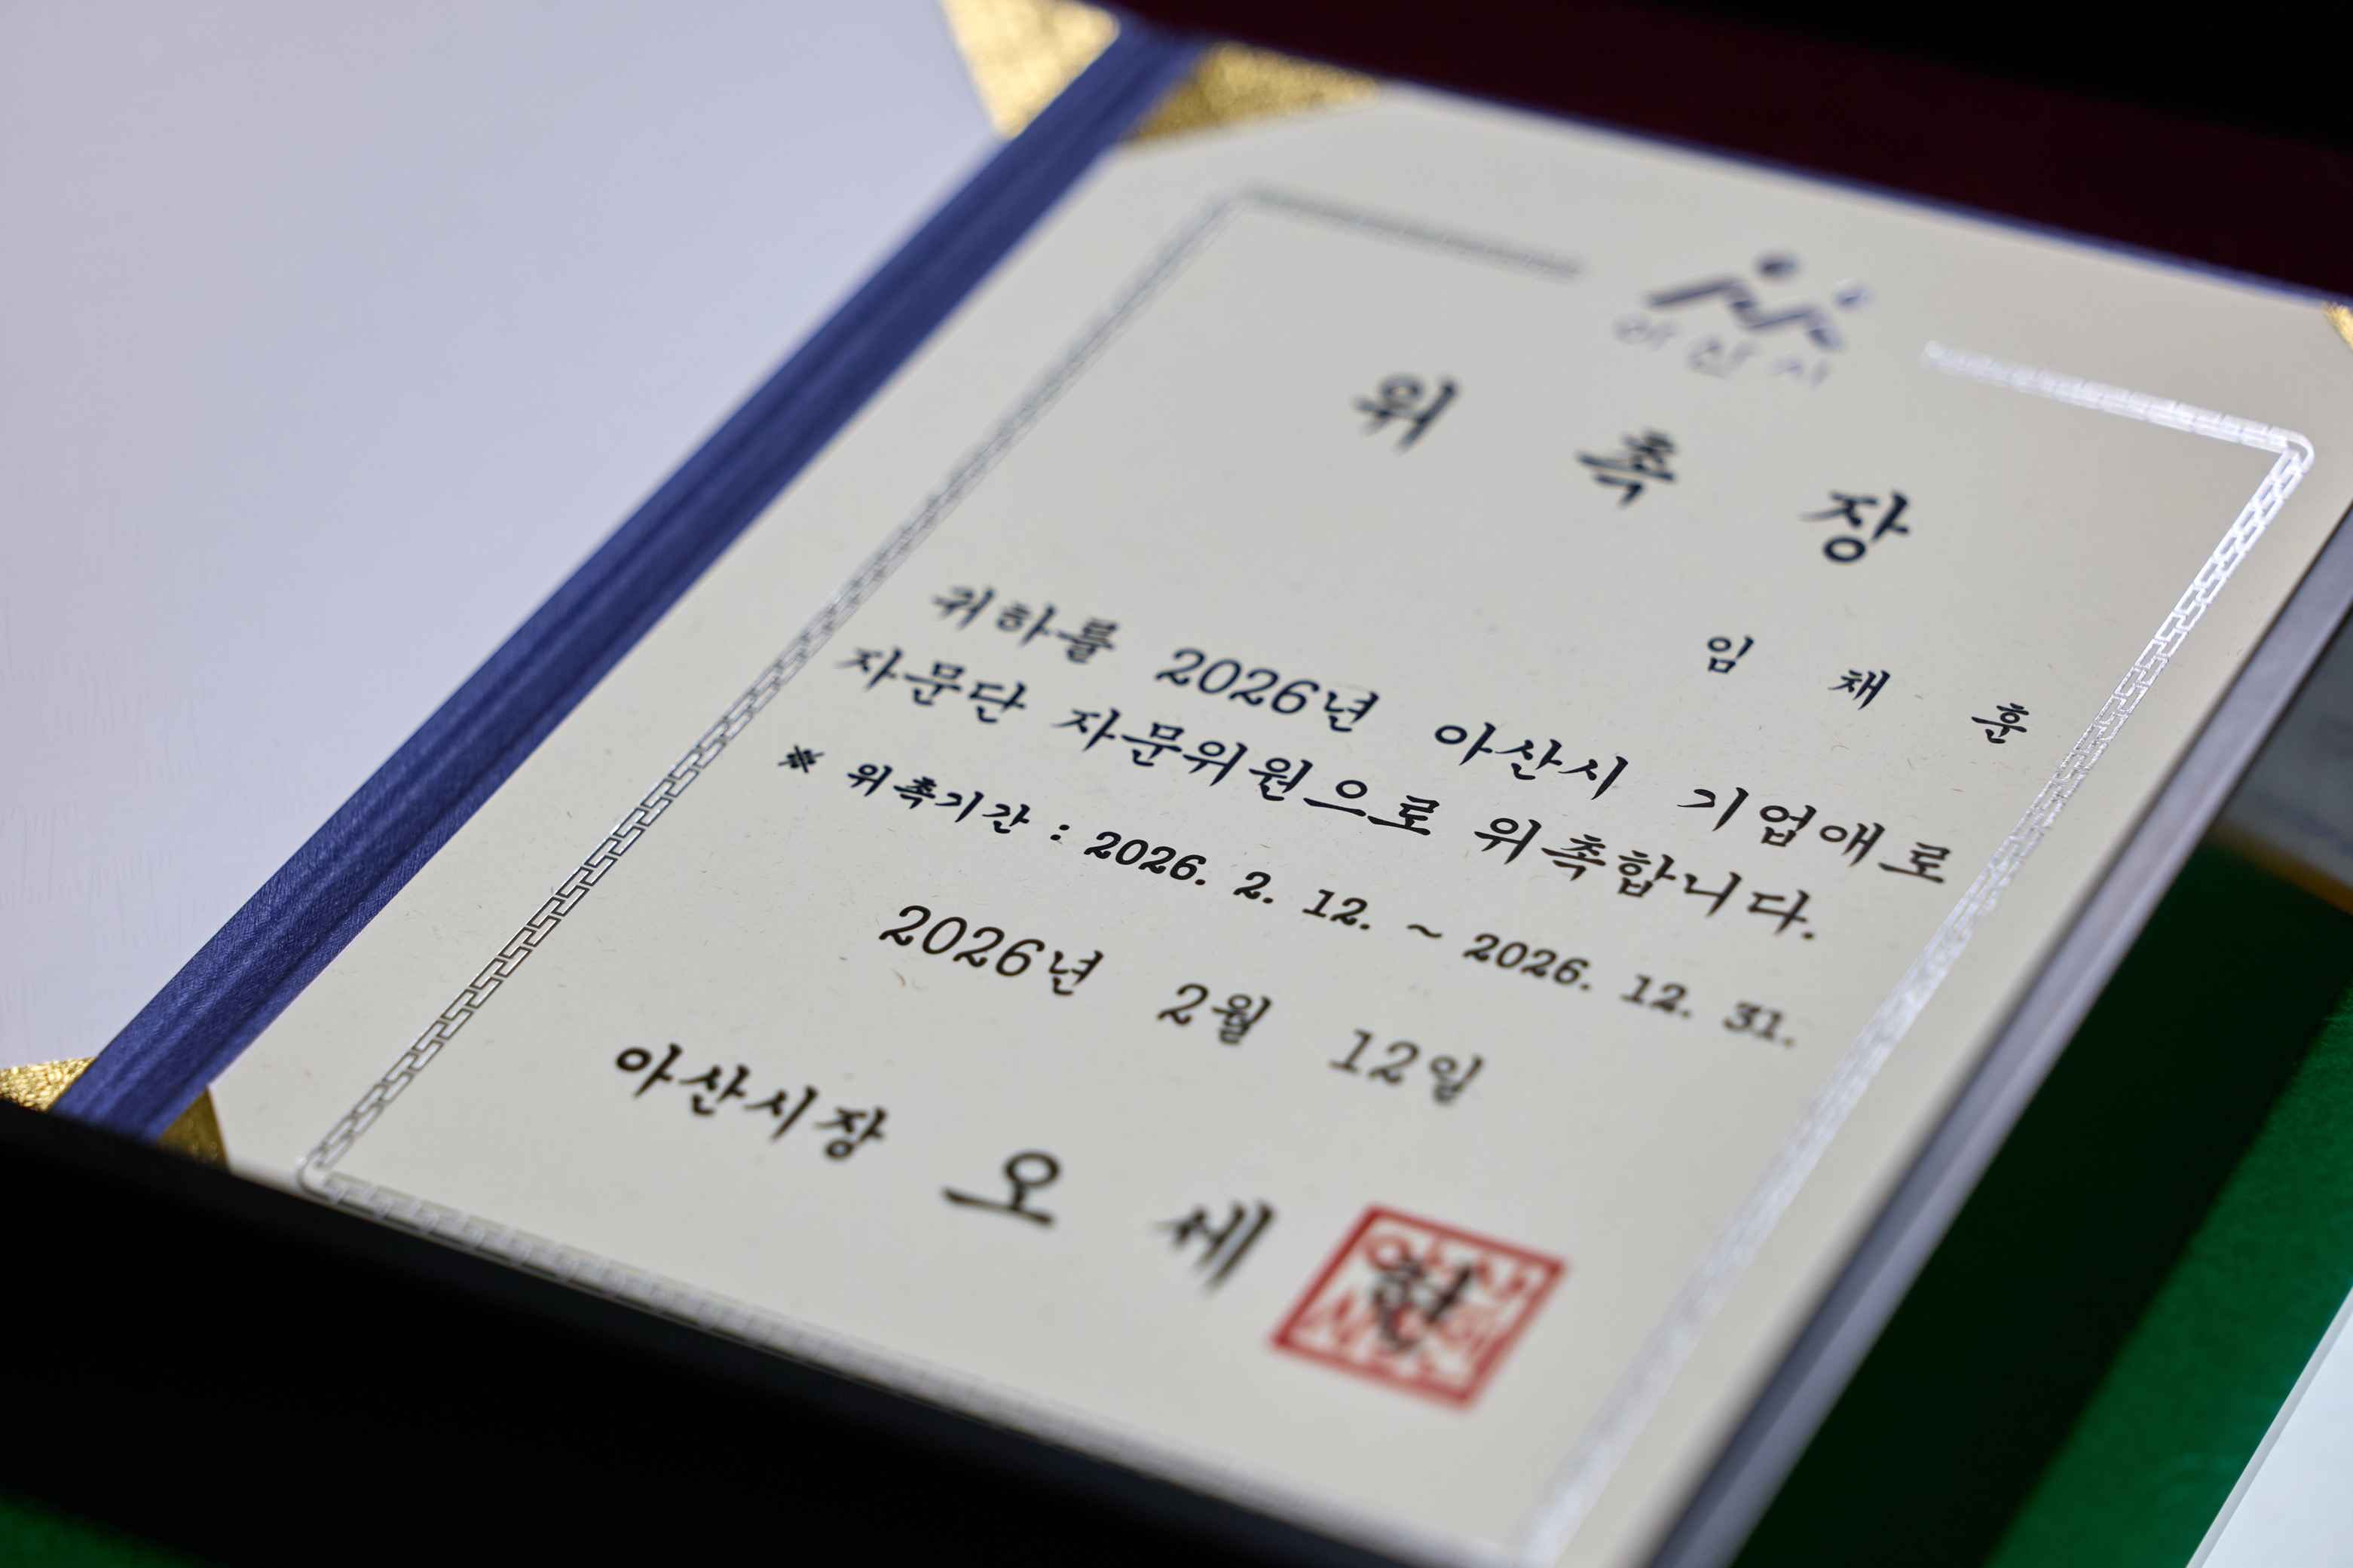 아산시
위 촉 장
임 채 훈
귀하를 2026년 아산시 기업애로
자문단 자문위원으로 위촉합니다.
※ 위촉기간 : 2026. 2. 12. ~ 2026. 12. 31.
2026년 2월 12일
아산시장 오 세 현